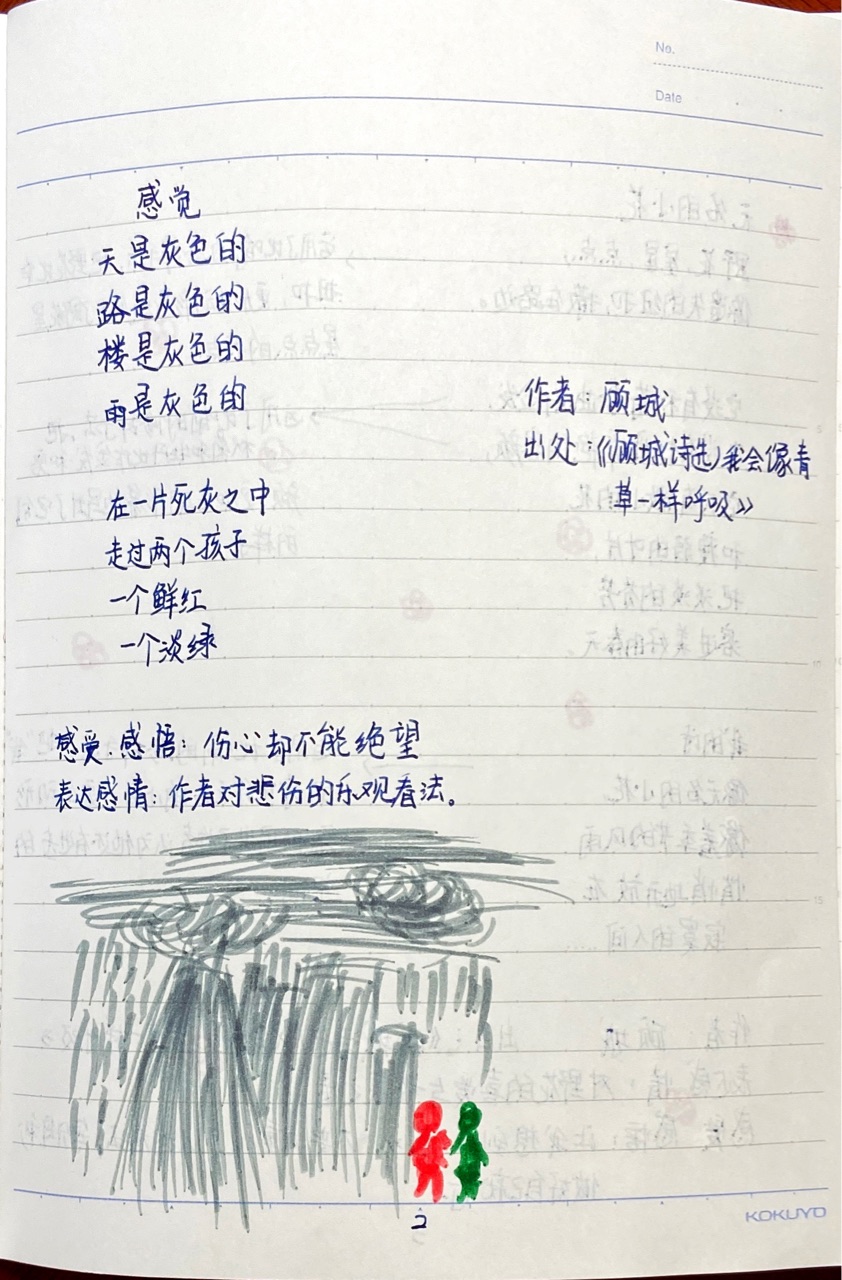 No.
Date
感觉
天是灰色的
路是灰色的
楼是灰色的
雨是灰色的
在一片死灰之中
走过两个孩子
一个鲜红
一个淡绿
作者：顾城
出处：《顾城诗选》我会像青
草一样呼吸》
感受.感悟：伤心却不能绝望
表达感情：作者对悲伤的乐观看法。
2
KOKUYO